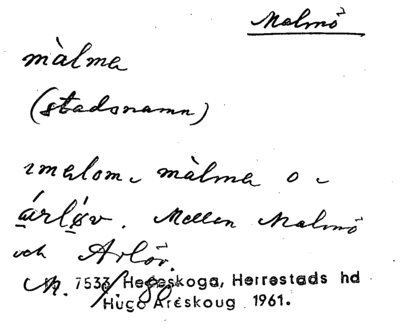 Malmö
màlma
(stadsnamn)
imalom màlma o
árløv. Mellan Malmö
och Arlöv.
M. 7533 Hedeskoga, Herrestads hd
Hugo Areskoug 1961.